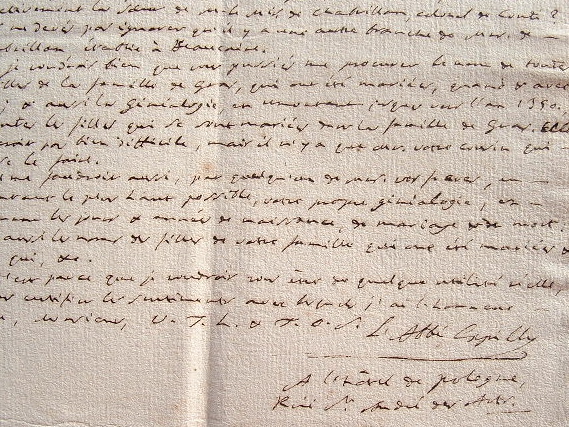 le sieur de M. le Mis de Chastillon, colonel de Conti ?
me devés pas ignorer qu'il y a une autre branche de Mrs. de
établie à Beaucaire.
je voudrois bien que vous pussiés me procurer le nom de toutes
de la famille de Gras, qui ont été mariées, quand & avec
& aussi la généalogie, en remontant jusques vers l'an 1350.
toutes les filles qui se sont mariées dans la famille de Gras. cela
pas bien difficile, mais il n'y a que votre cousin qui
le faire.
me faudroit aussi, par quelqu'un de Mrs. vos freres,
le plus haut possible, votre propre généalogie, en
les jours & années de naissance, de mariage & de mort.
aussi les noms des filles de votre famille qui ont été mariées &
qui, &c.
parce que je voudrois vous être de quelque utilité réelle,
certifier les sentimens avec lesquels j'ai l'honneur
V. T. h. & T. o. S. L'Abbé Expilly
A l'hôtel de pologne,
Rüe St. André des Arts.